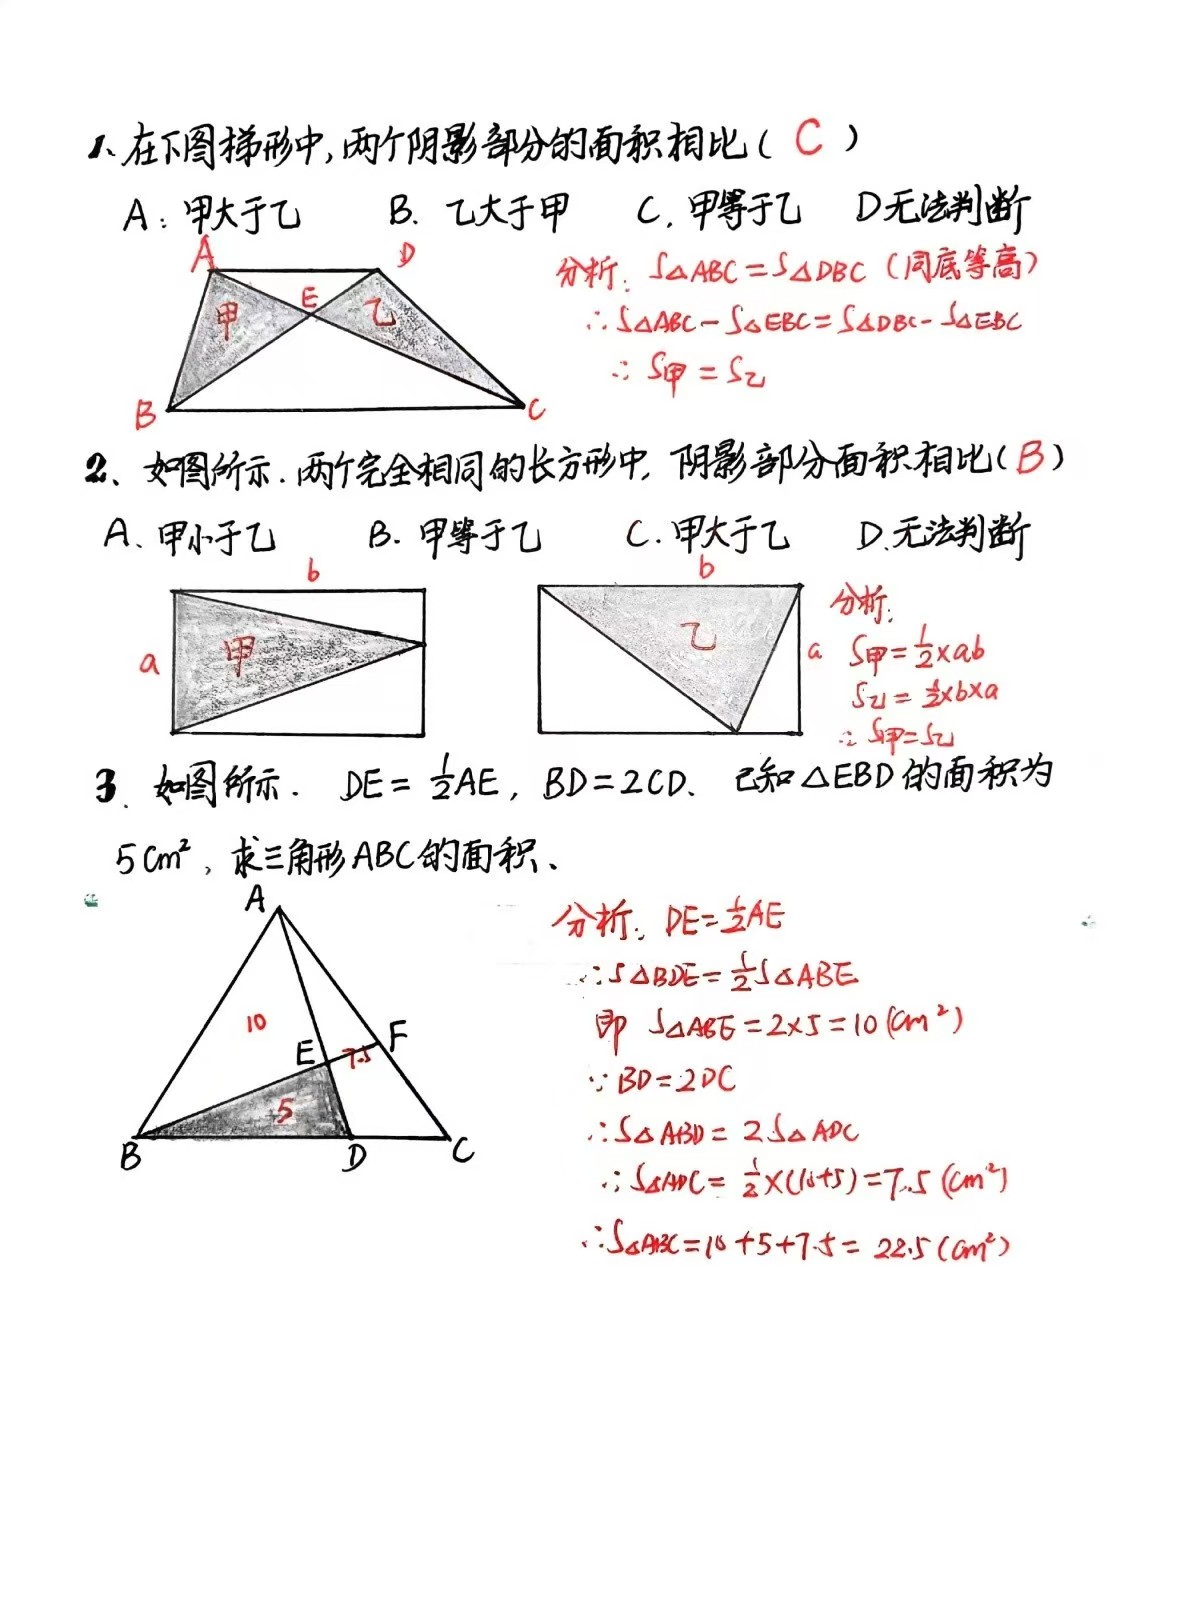 1、在下图梯形中,两个阴影部分的面积相比( C )
A:甲大于乙 B. 乙大于甲 C. 甲等于乙 D无法判断
A D
甲 E 乙
B C
分析: S△ABC=S△DBC (同底等高)
∴S△ABC-S△EBC=S△DBC-S△EBC
∴ S甲=S乙
2、如图所示.两个完全相同的长方形中,阴影部分面积相比(B)
A、甲小于乙 B. 甲等于乙 C.甲大于乙 D.无法判断
b
a 甲
b
乙 a
分析:
S甲=½×ab
S乙=½×b×a
∴ S甲=S乙
3、如图所示. DE=½AE, BD=2CD. 已知△EBD的面积为
5cm², 求三角形ABC的面积、
A
10
E 7.5 F
5
B D C
分析: DE=½AE
∴S△BDE=½S△ABE
即 S△ABE=2×5=10(cm²)
∵BD=2DC
∴S△ABD=2S△ADC
∴S△ADC=½×(10+5)=7.5(cm²)
∴S△ABC=10+5+7.5=22.5(cm²)